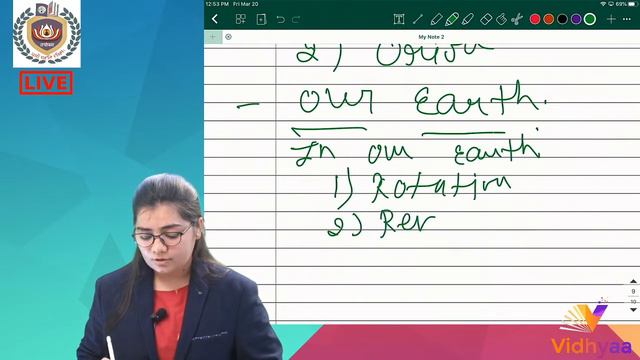 12:53 PM Fri Mar 20
69%
My Note 2
LIVE
- Our Earth.
In our earth.
1) Rotation
2) Rev
9
10
Vidhyaa